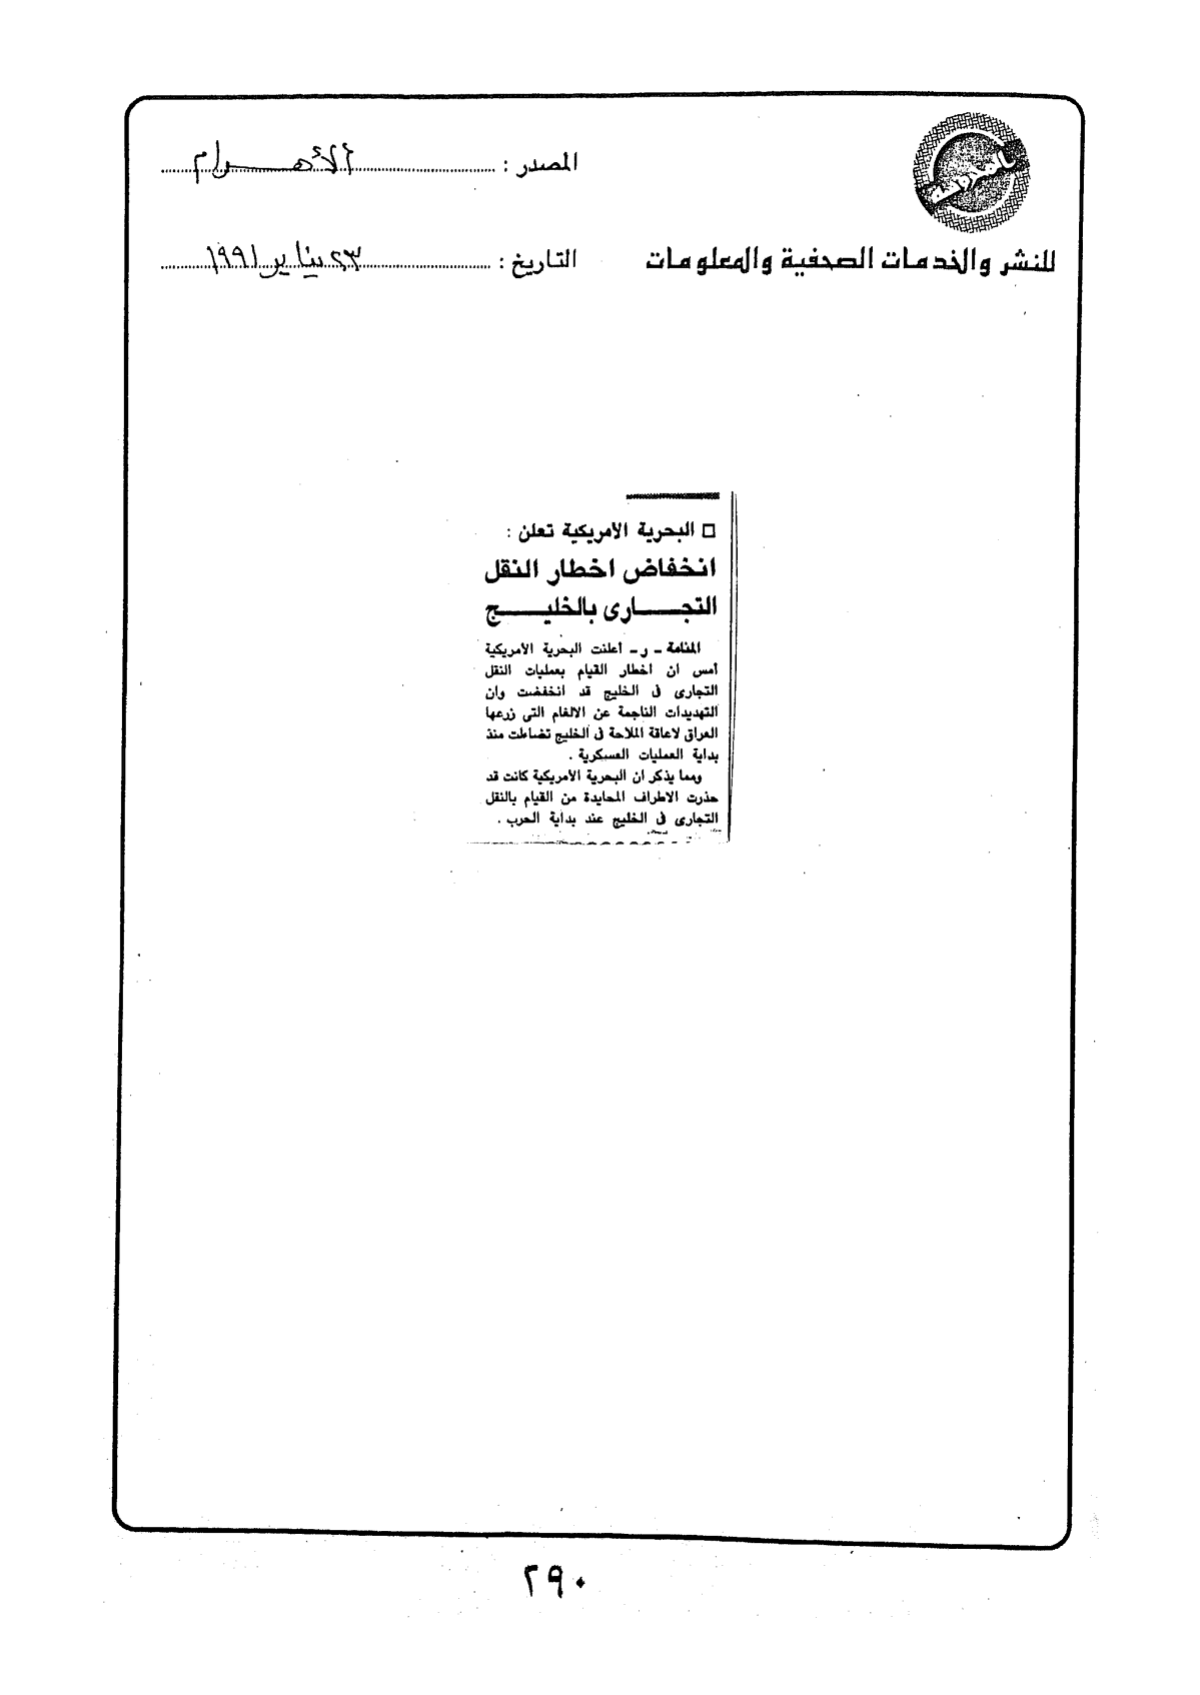 المصدر : الأهرام
للنشر والخدمات الصحفية والمعلومات
التاريخ : ٢٣ يناير ١٩٩١
□ البحرية الأمريكية تعلن :
انخفاض اخطار النقل
التجارى بالخليج
المنامة - ر - أعلنت البحرية الأمريكية
أمس ان اخطار القيام بعمليات النقل
التجارى فى الخليج قد انخفضت وان
التهديدات الناجمة عن الالغام التى زرعها
العراق لاعاقة الملاحة فى الخليج تضاءلت منذ
بداية العمليات العسكرية .
ومما يذكر ان البحرية الأمريكية كانت قد
حذرت الاطراف المحايدة من القيام بالنقل
التجارى فى الخليج عند بداية الحرب .
٢٩٠